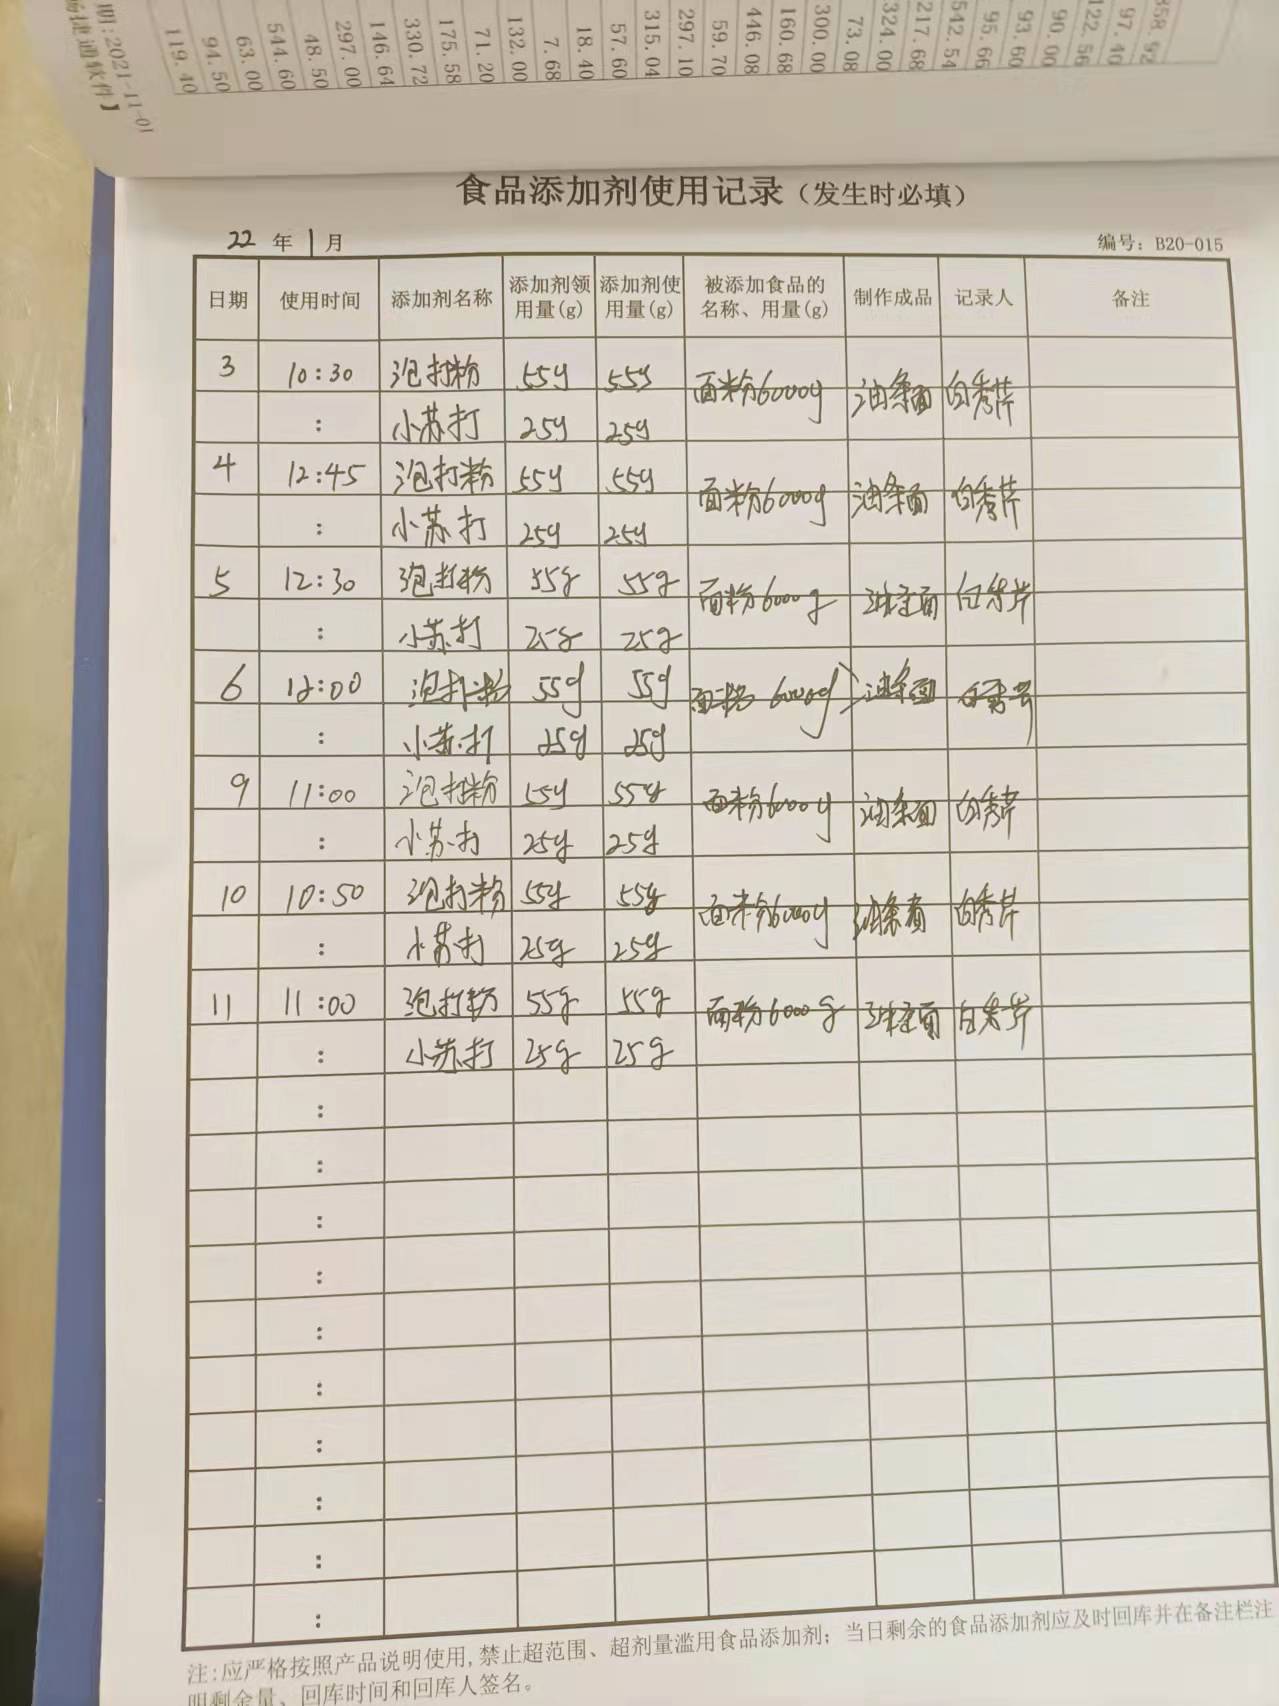 期:2021-11-01
畅捷通软件】
119.40
94.50
63.00
544.60
48.50
297.00
146.64
330.72
175.58
71.20
132.00
7.68
18.40
57.60
315.04
297.10
59.70
446.08
160.68
300.00
73.08
324.00
217.68
542.54
95.66
93.60
90.00
122.56
97.40
358.92
食品添加剂使用记录（发生时必填）
22 年 1 月 编号: B20-015
日期 使用时间 添加剂名称 添加剂领用量(g) 添加剂使用量(g) 被添加食品的名称、用量(g) 制作成品 记录人 备注
3 10:30 泡打粉 55g 55g 面粉6000g 油条面 白秀芹
: 小苏打 25g 25g
4 12:45 泡打粉 55g 55g 面粉6000g 油条面 白秀芹
: 小苏打 25g 25g
5 12:30 泡打粉 55g 55g 面粉6000g 油条面 白秀芹
: 小苏打 25g 25g
6 12:00 泡打粉 55g 55g 面粉 6000g 油条面 白秀芹
: 小苏打 25g 25g
9 11:00 泡打粉 55g 55g 面粉6000g 油条面 白秀芹
: 小苏打 25g 25g
10 10:50 泡打粉 55g 55g 面粉6000g 油条面 白秀芹
: 小苏打 25g 25g
11 11:00 泡打粉 55g 55g 面粉6000g 油条面 白秀芹
: 小苏打 25g 25g
:
:
:
:
:
:
:
:
:
:
注:应严格按照产品说明使用,禁止超范围、超剂量滥用食品添加剂；当日剩余的食品添加剂应及时回库并在备注栏注
明剩余量、回库时间和回库人签名。